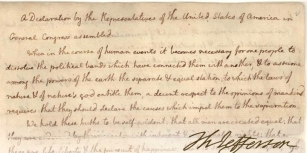 A Declaration by the Representatives of the United States of America in
General Congress assembled.
When in the course of human events it becomes necessary for one people to
dissolve the political bands which have connected them with another, & to assume
among the powers of the earth the separate & equal station to which the laws of
nature & of nature's god entitle them, a decent respect to the opinions of mankind
requires that they should declare the causes which impel them to the separation.
We hold these truths to be self evident: that all men are created equal; that
they are
Th Jefferson